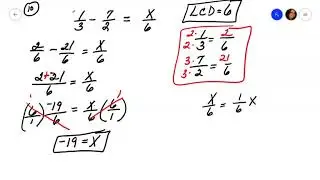 10
1/3 - 7/2 = X/6
LCD=6
2/6 - 21/6 = X/6
2·1/2·3 = 2/6
3·7/3·2 = 21/6
2+21/6 = X/6
(6/1) -19/6 = X/6 (6/1)
X/6 = 1/6 X
-19 = X